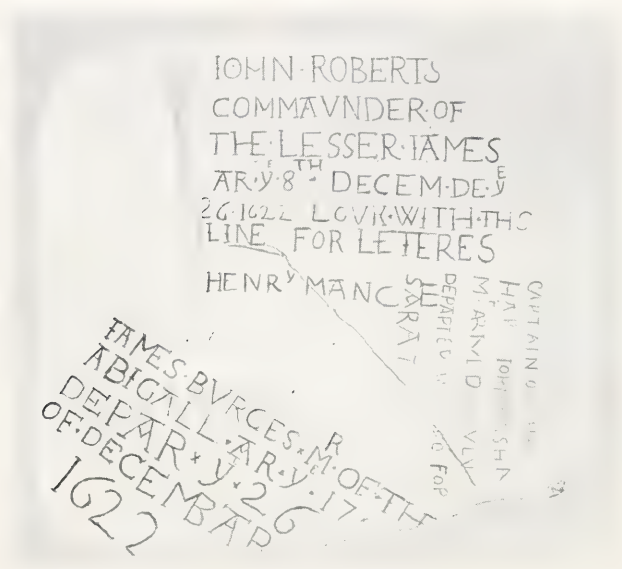 IOHN·ROBERTS
COMMAVNDER·OF
THE·LESSER·IAMES
AR·Y·8TH DECEM·DE·YE
26·1622 LOVK·WITH·THS
LINE FOR LETERES
HENRY MANCE
CAPTAIN
DEPARTED
FOR
IAMES·BVRCES·MR·OE·TH
ABIGALL·AR·YE·17·
DEPAR·Y·26
OF·DECEMBAR
1622